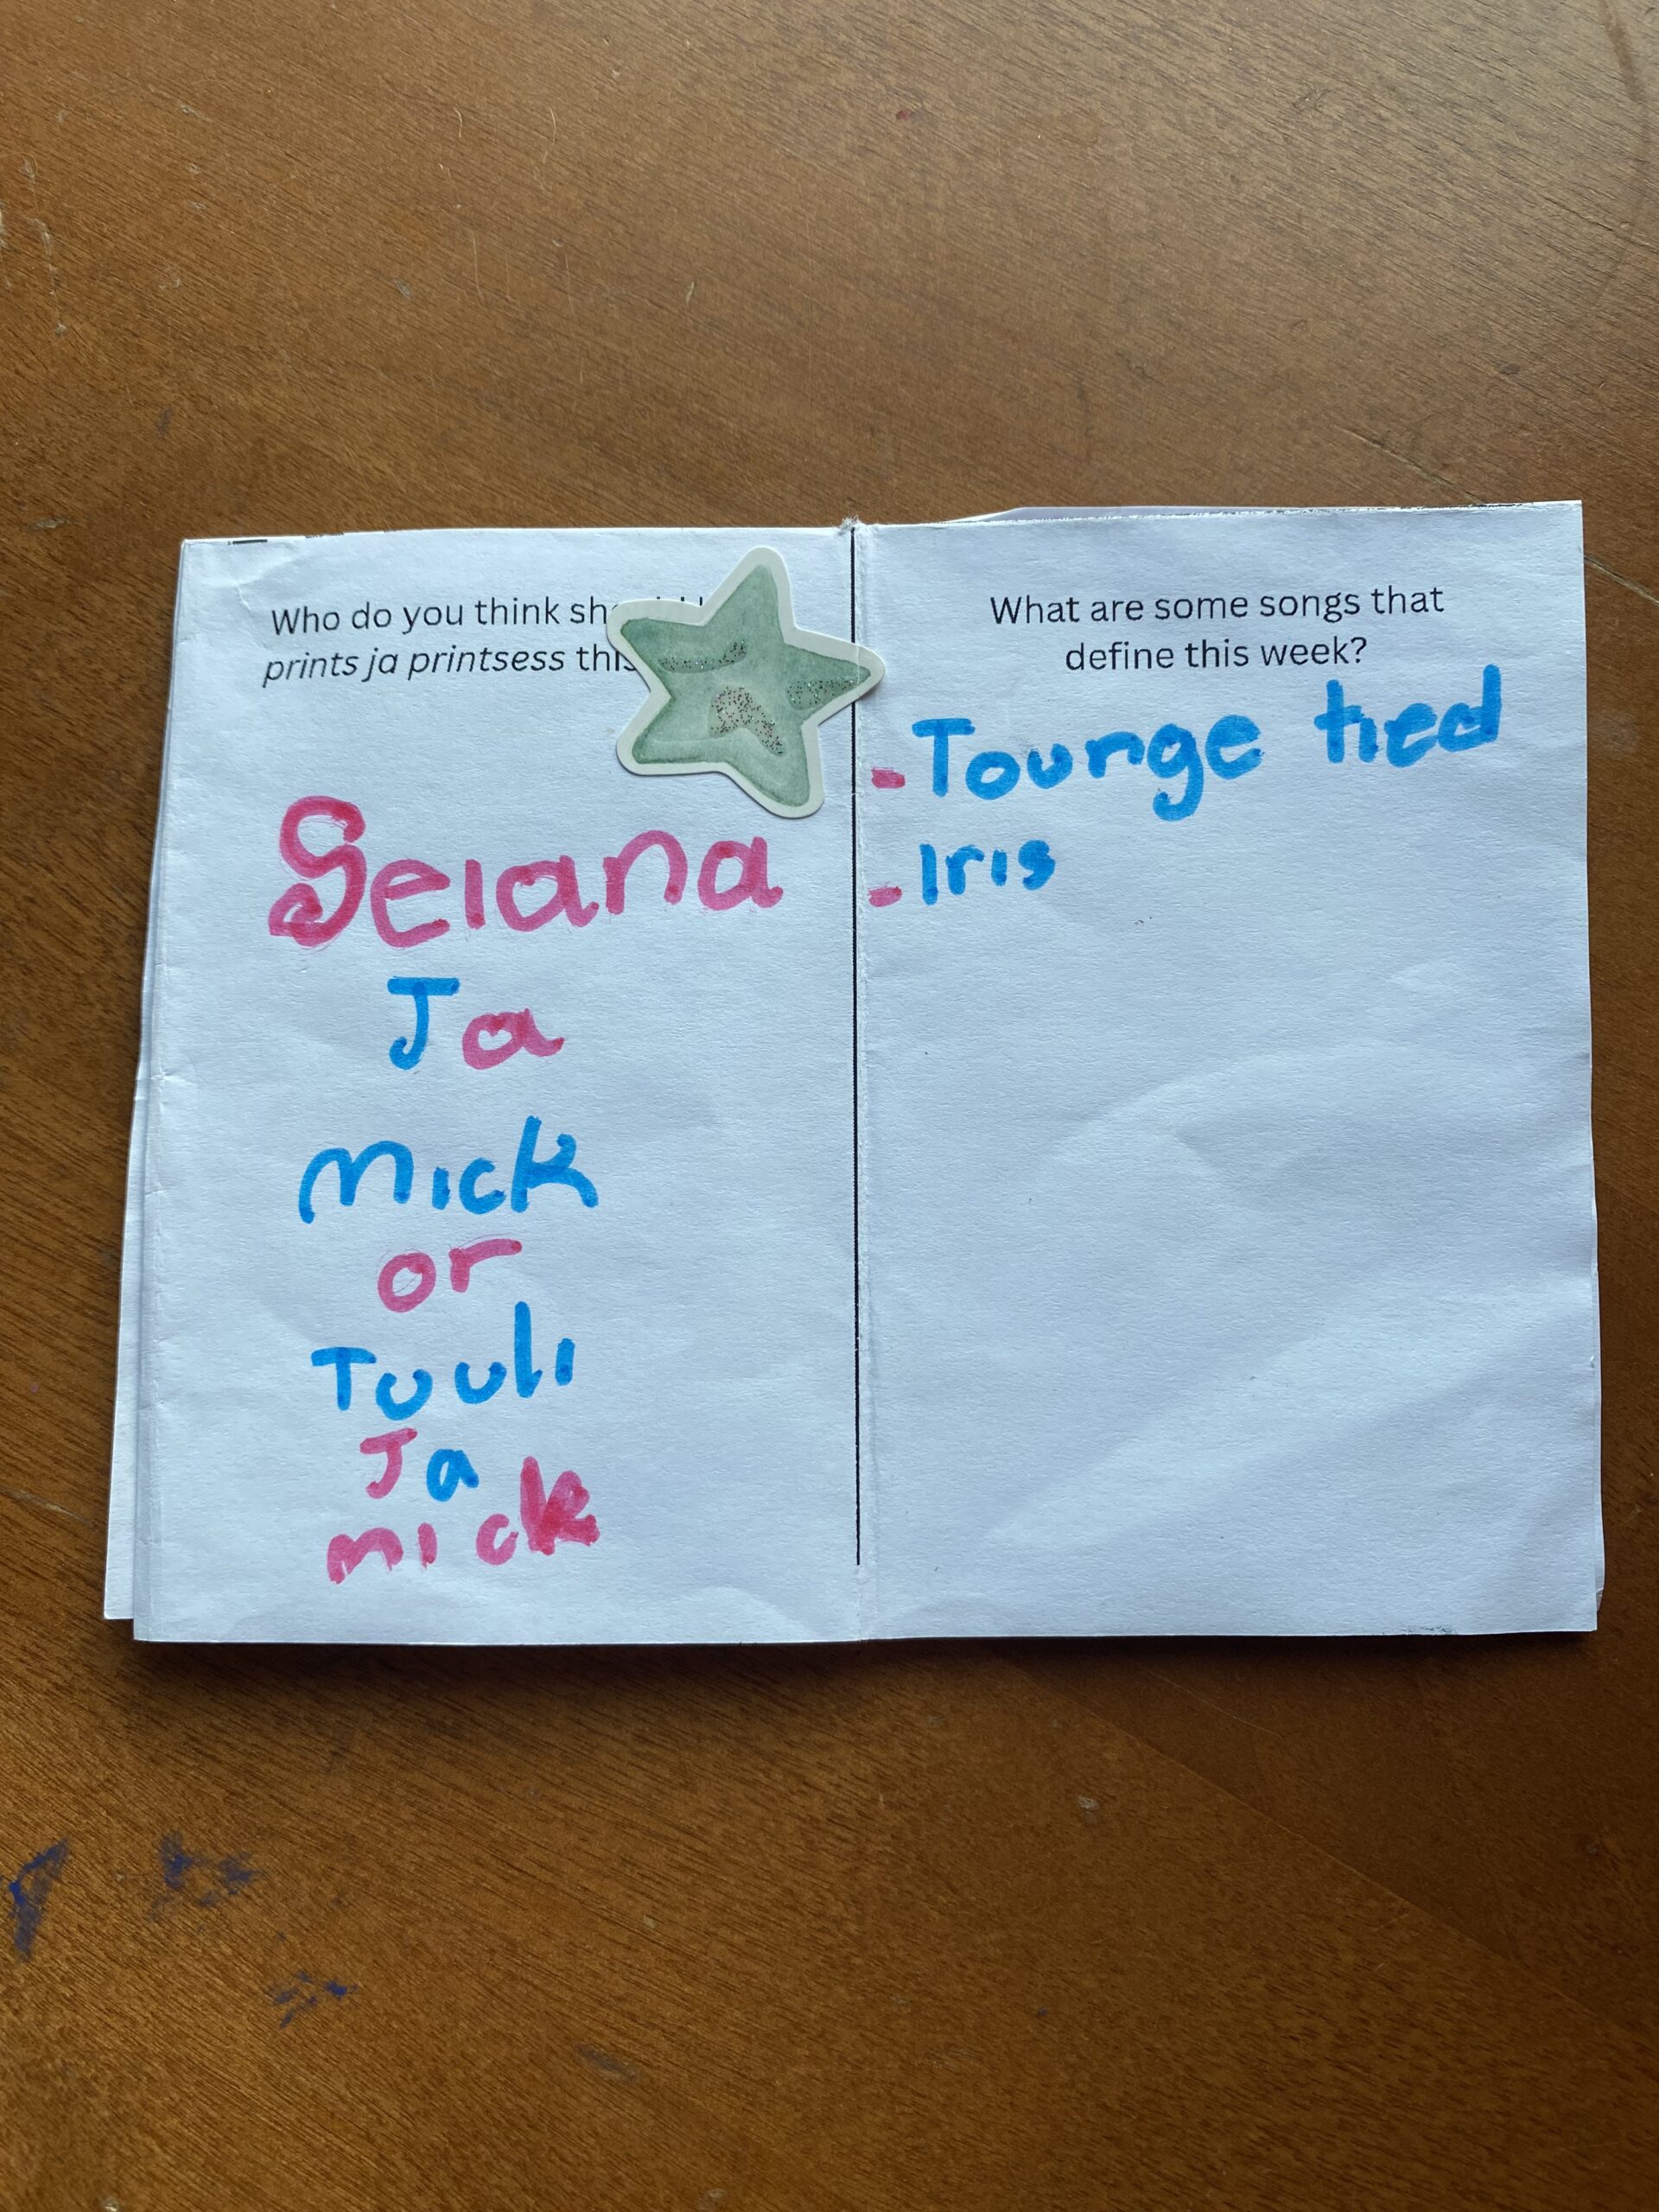 Who do you think
prints ja printsess this
Selana
Ja
Mick
or
Tuuli
Ja
mick
What are some songs that
define this week?
-Tounge tied
-Iris